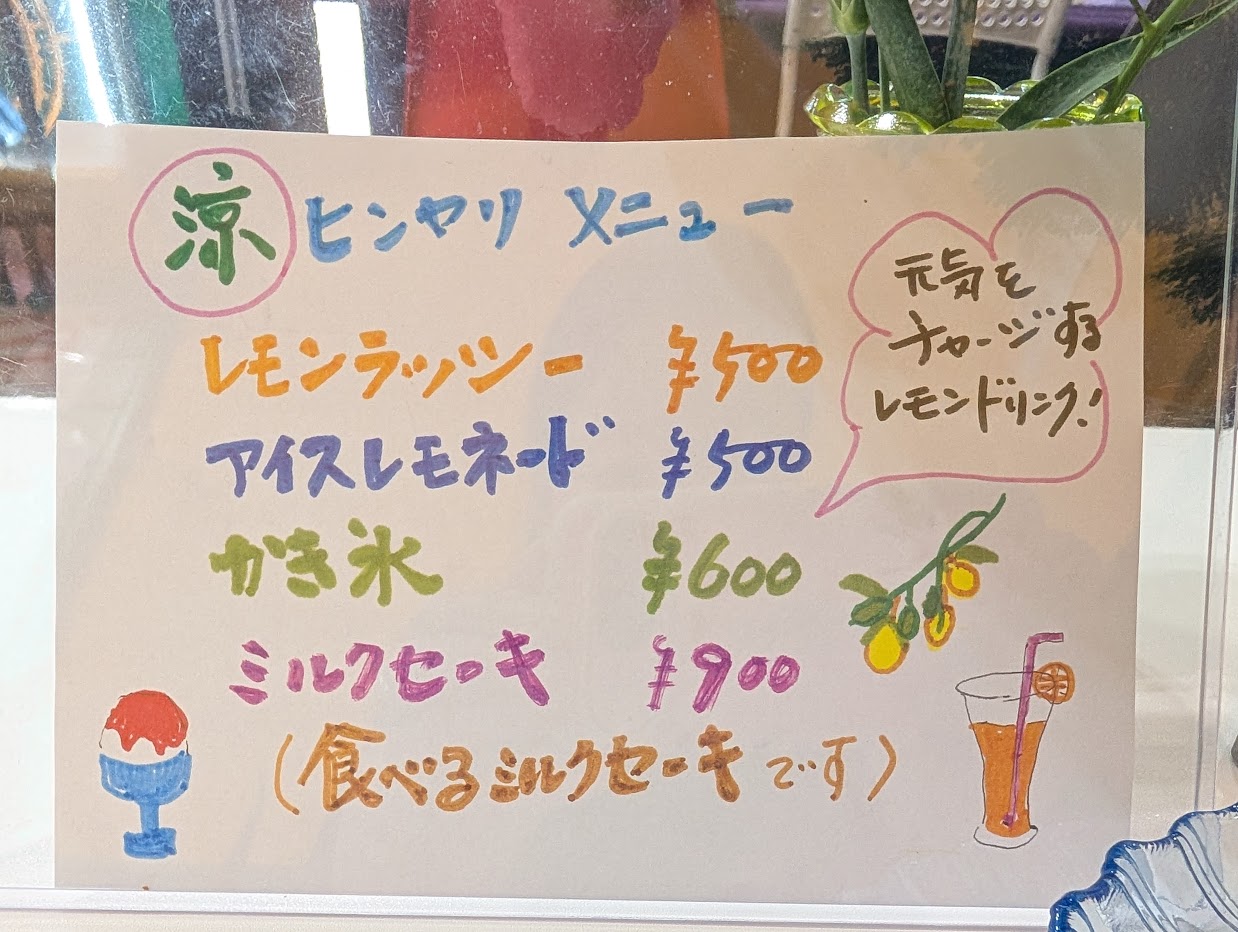 涼 ヒンヤリ メニュー
元気を
チャージする
レモンドリンク!
レモンラッシー ¥500
アイスレモネード ¥500
かき氷 ¥600
ミルクセーキ ¥900
(食べるミルクセーキです)